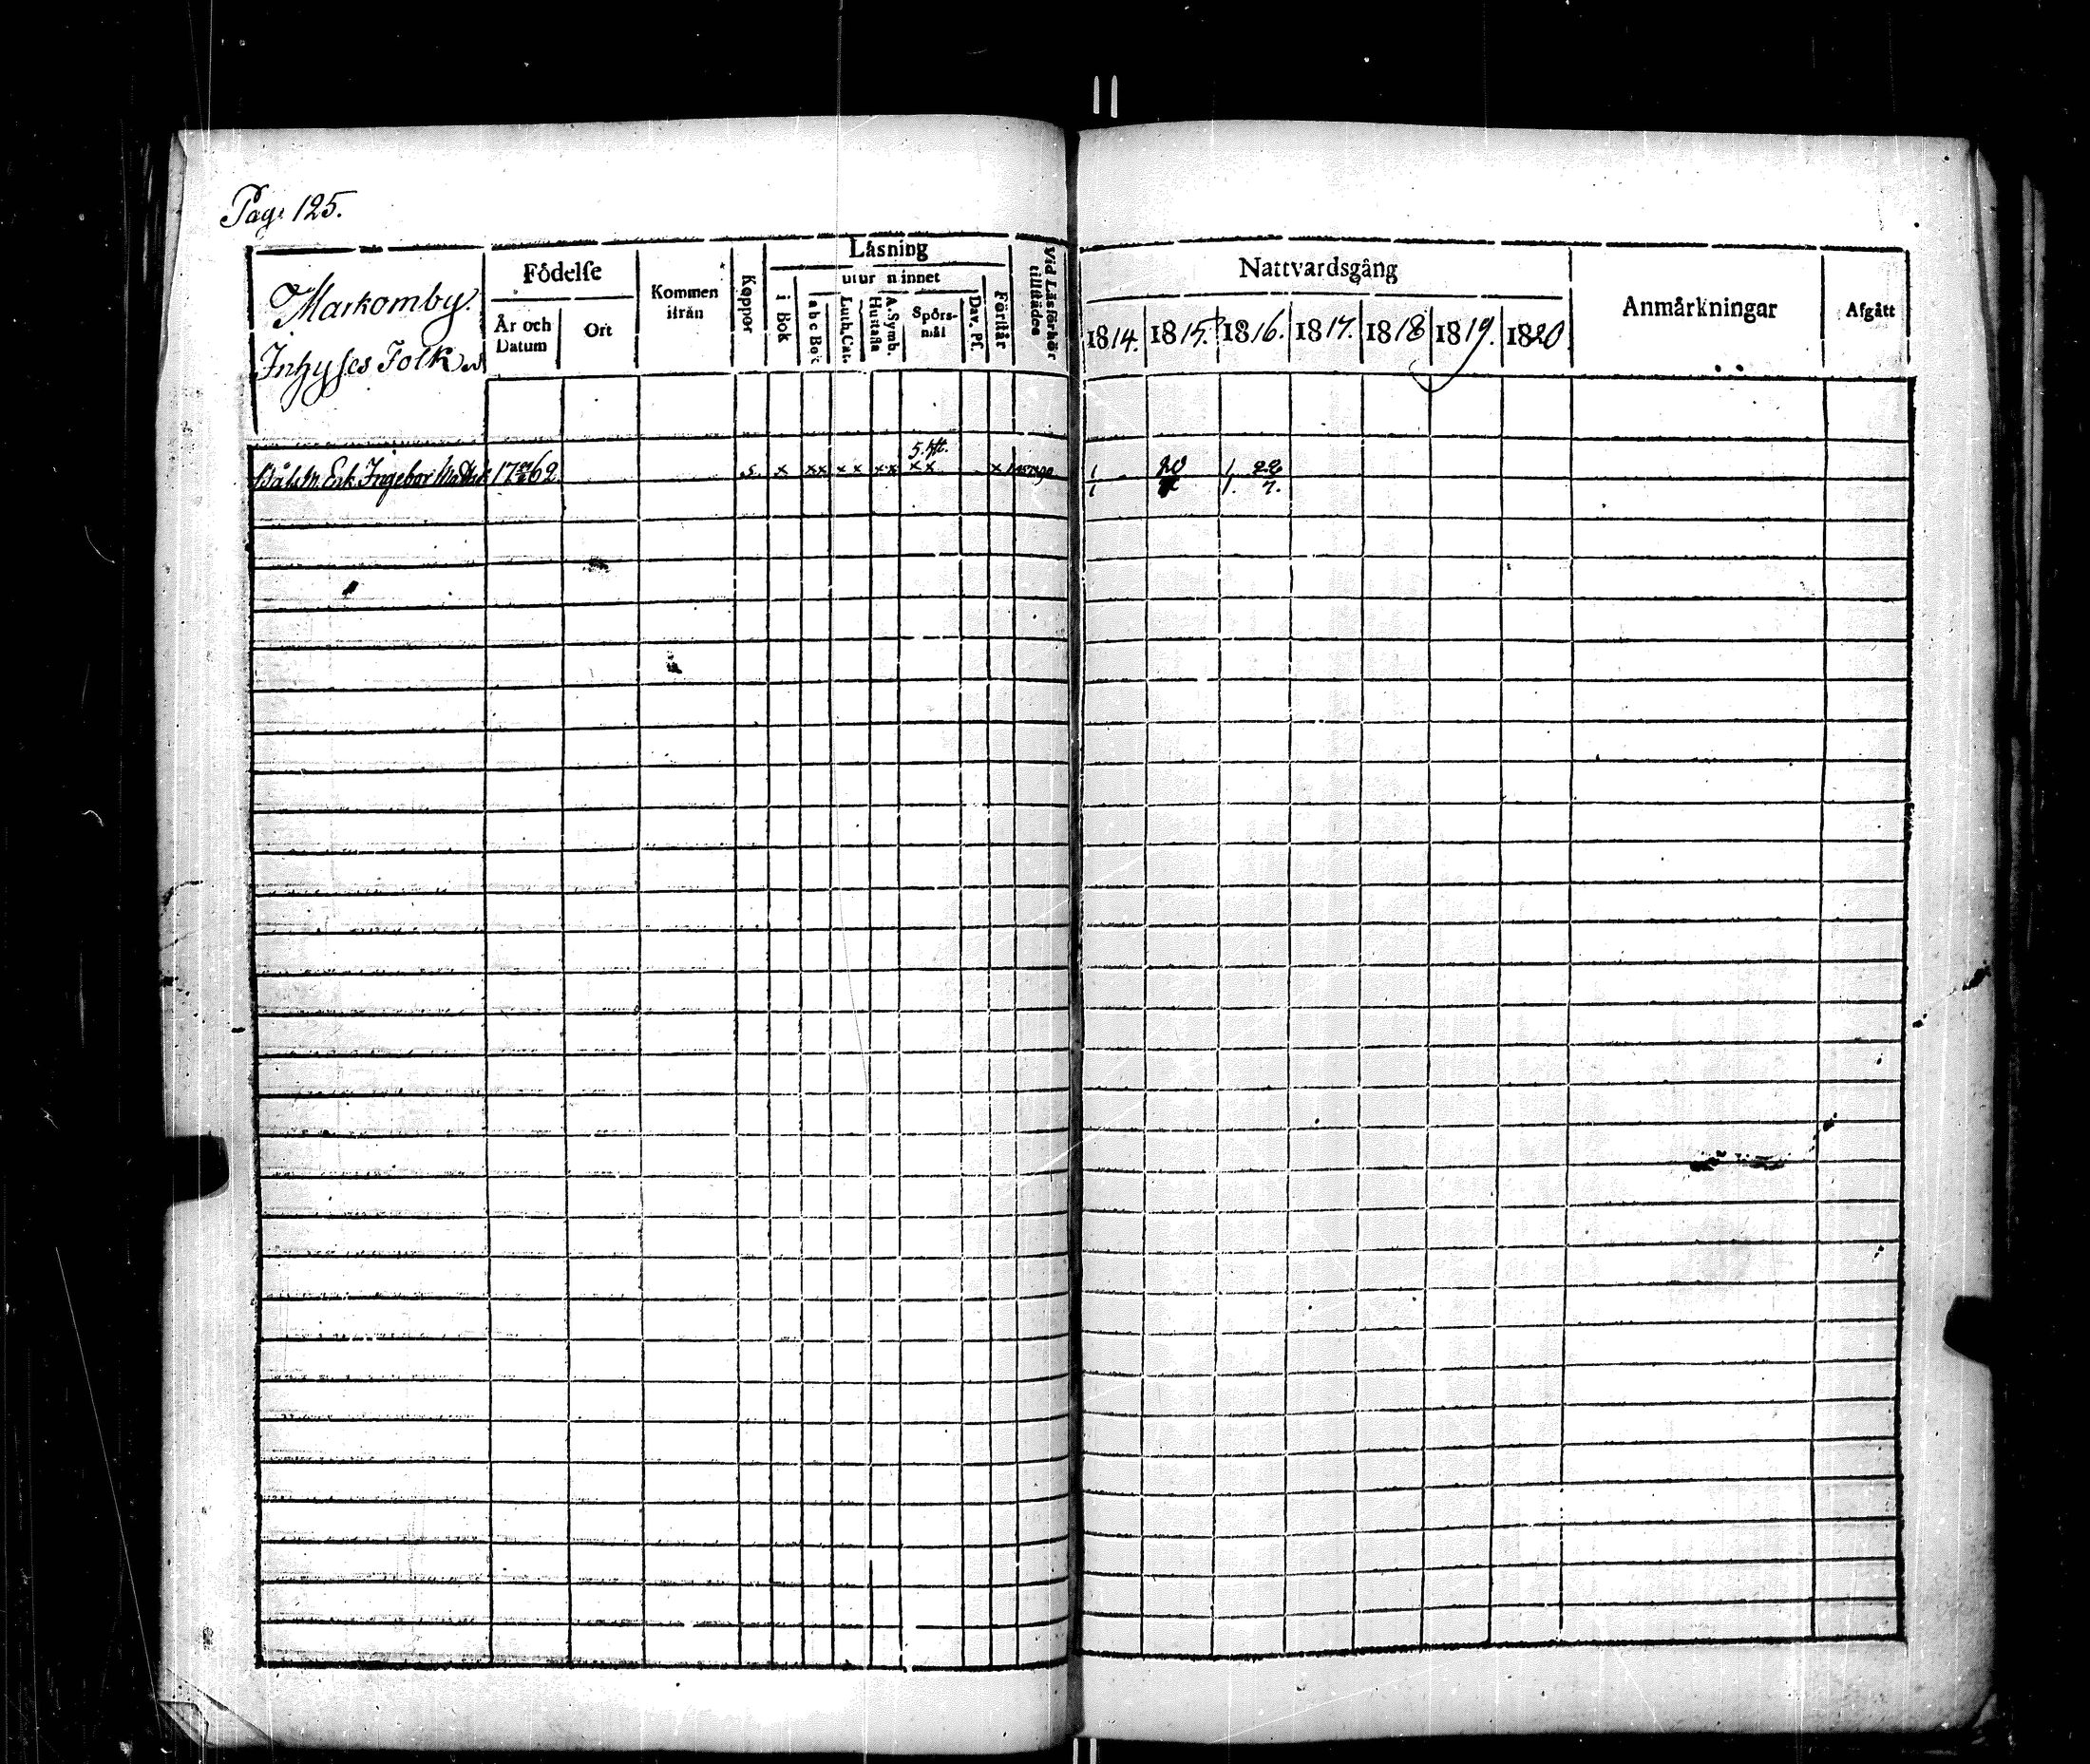 Pag. 125.
Markomby.
Inhyses Folk
Födelse
År och Datum
Ort
Kommen ifrån
Koppor
Läsning
i Bok
utur minnet
a b c Bok
Luth. Cat.
A. Symb. Hustafla
Spörs-mål
Dav. Ps.
Förstår
Vid Läsförhör tillstädes
Nattvardsgång
1814.
1815.
1816.
1817.
1818
1819.
1820
Anmärkningar
Afgått
Enk. Ingebor 17 62. s. x xx xx xx 5. xx x
1 20 1. 22
1 1. 7.